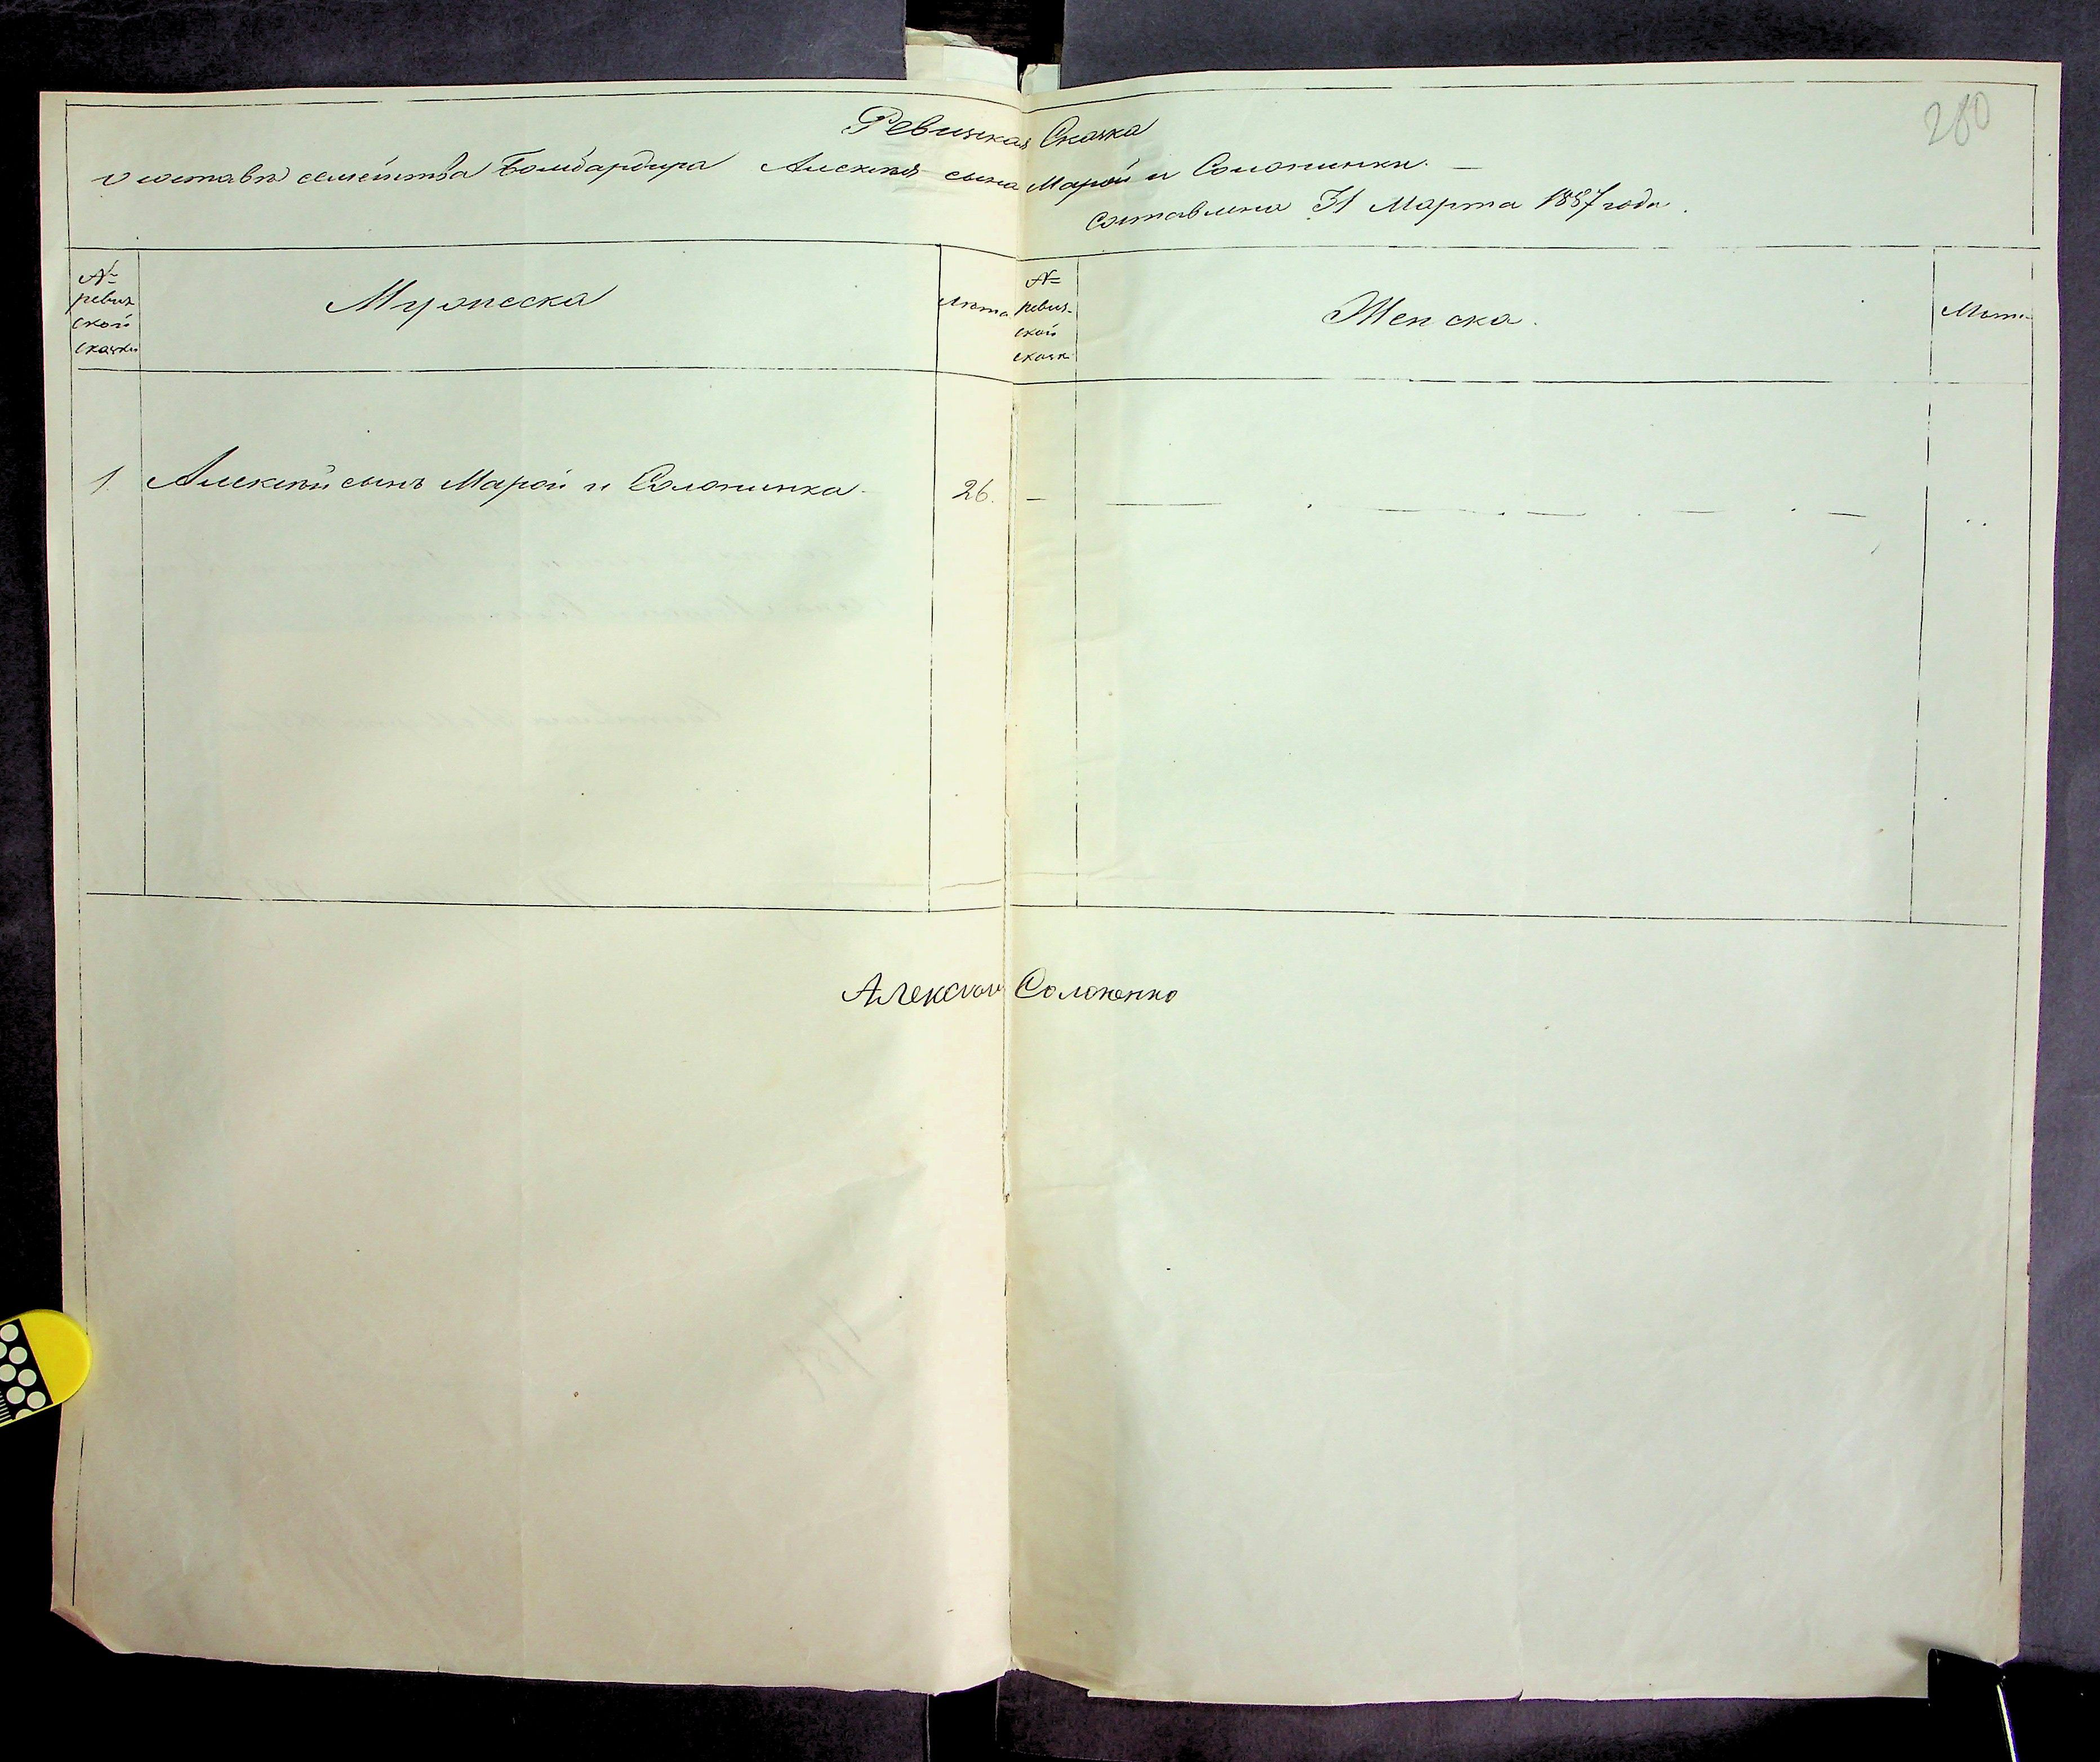 280
Ревизская Сказка
о составѣ семейства Бомбардира Алексѣя сына Марои и Солонинки. —
Составлена 31 Марта 1887 года.
№ ревизской сказки
Мужеска
Лѣта
№ ревизской сказк
Женска.
Лѣта
1. Алексѣй сынъ Марои и Солонинка. 26. —
Алексей Солоненко